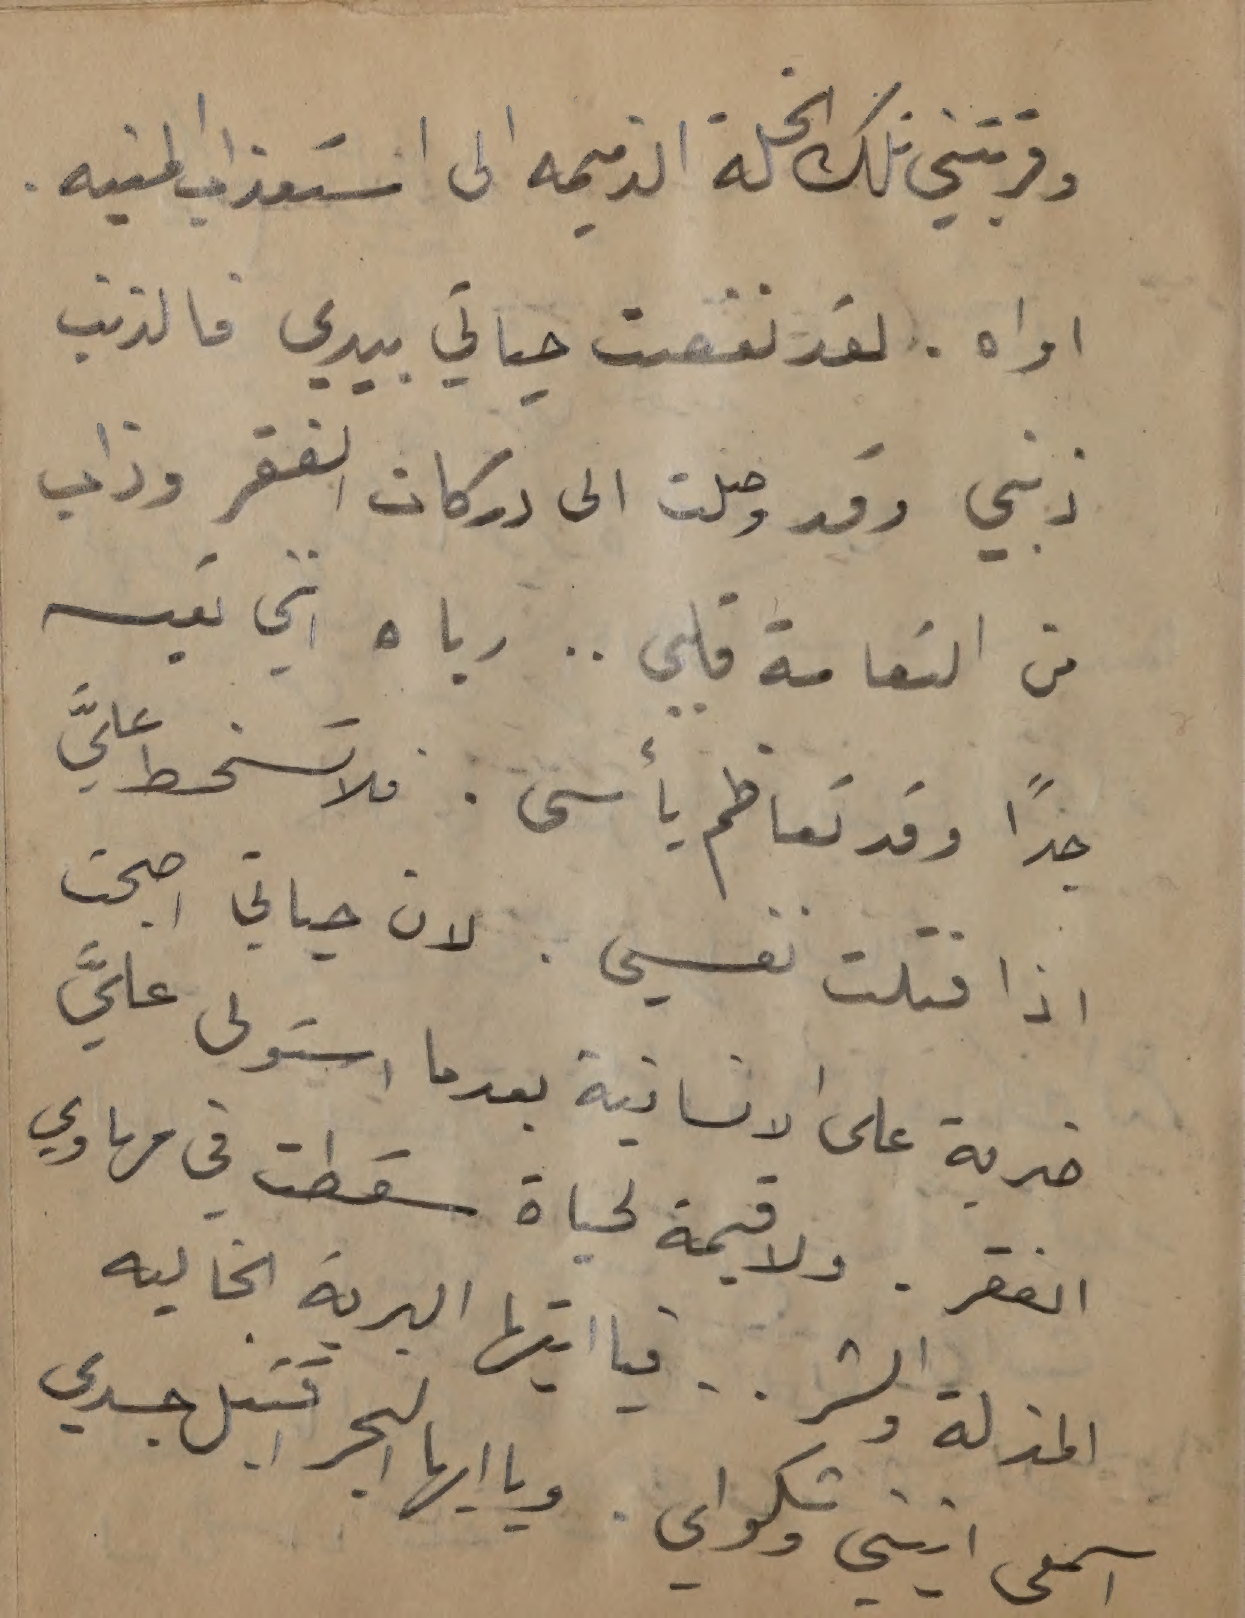 وقربتني تلك الخلة الذميمه الى استعذاب المنيه .
اواه . لقد نغصت حياتي بيدي فالذنب
ذنبي وقد وصلت الى دركات الفقر وذاب
من التعاسة قلبي .. رباه انني تعيسه
جدًا وقد تعاظم يأسي . فلا تسخط عليَّ
اذا قتلت نفسي . لان حياتي اصبحت
ضربة على الانسانية بعدما استولى عليَّ
الفقر . ولا قيمة لحياة سقطت في مهاوي
المذلة والشر .. فيا ايتها البرية الخاليه
اسمعي انيني وشكواي . ويا ايها البحر اقتبل جسدي